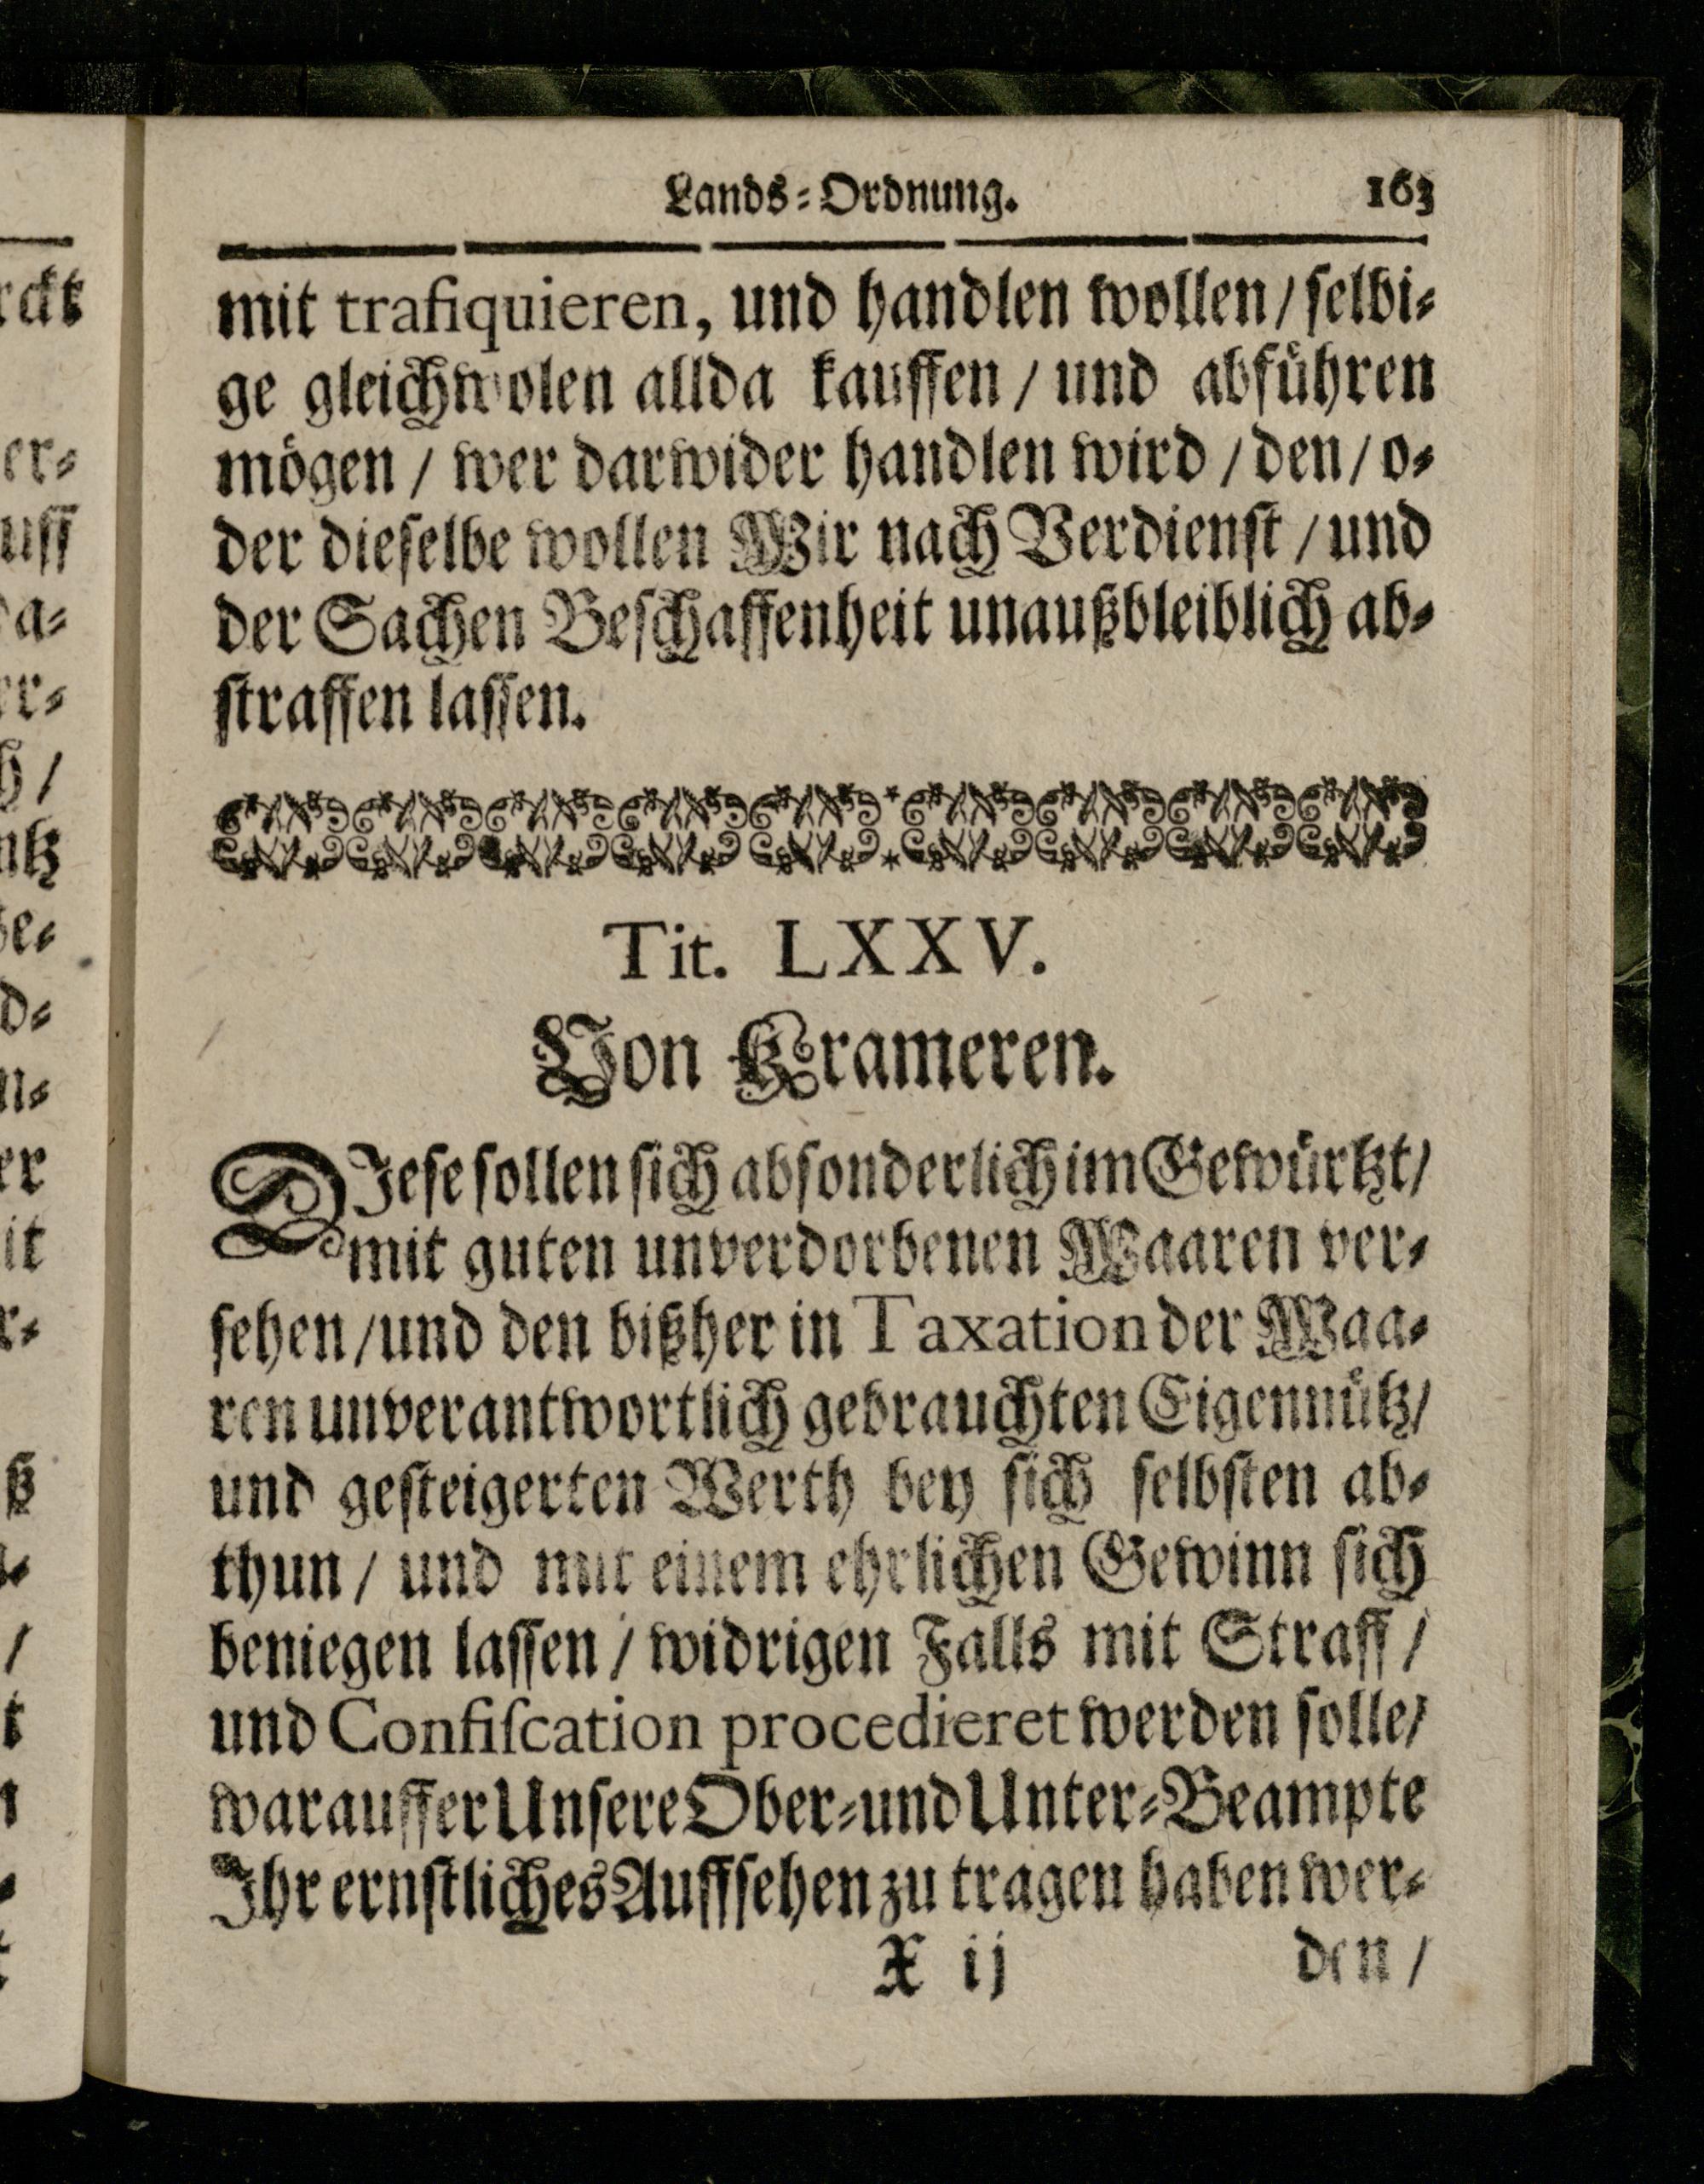 Lands-Ordnung. 163
mit trafiquieren, und handlen wollen / selbi-
ge gleichwolen allda kauffen / und abführen
mögen / wer darwider handlen wird / den / o-
der dieselbe wollen Wir nach Verdienst / und
der Sachen Beschaffenheit unaußbleiblich ab-
straffen lassen.
Tit. LXXV.
Von Krameren.
DIese sollen sich absonderlich im Gewürtzt /
mit guten unverdorbenen Waaren ver-
sehen / und den bißher in Taxation der Waa-
ren unverantwortlich gebrauchten Eigennütz /
und gesteigerten Werth bey sich selbsten ab-
thun / und mit einem ehrlichen Gewinn sich
beniegen lassen / widrigen Falls mit Straff /
und Confiscation procedieret werden solle /
warauffer Unsere Ober- und Unter-Beampte
Ihr ernstliches Auffsehen zu tragen haben wer-
X ij den /